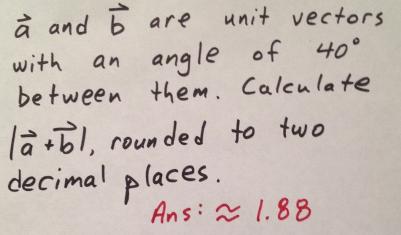 a⃗ and b⃗ are unit vectors
with an angle of 40°
between them. Calculate
|a⃗+b⃗|, rounded to two
decimal places.
Ans: ≈ 1.88